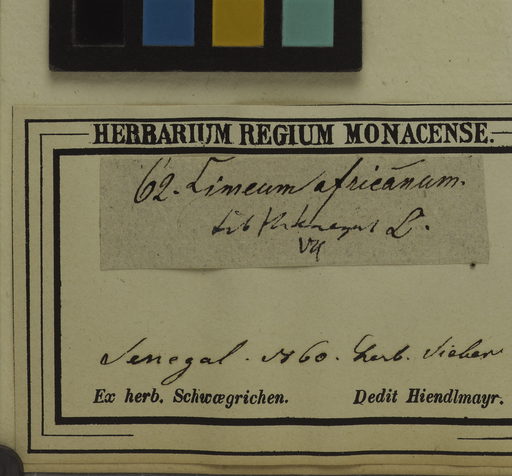 HERBARIUM REGIUM MONACENSE.
62. Limeum africanum.
L.
Senegal. No 60. herb. Sieber
Ex herb. Schwægrichen. Dedit Hiendlmayr.